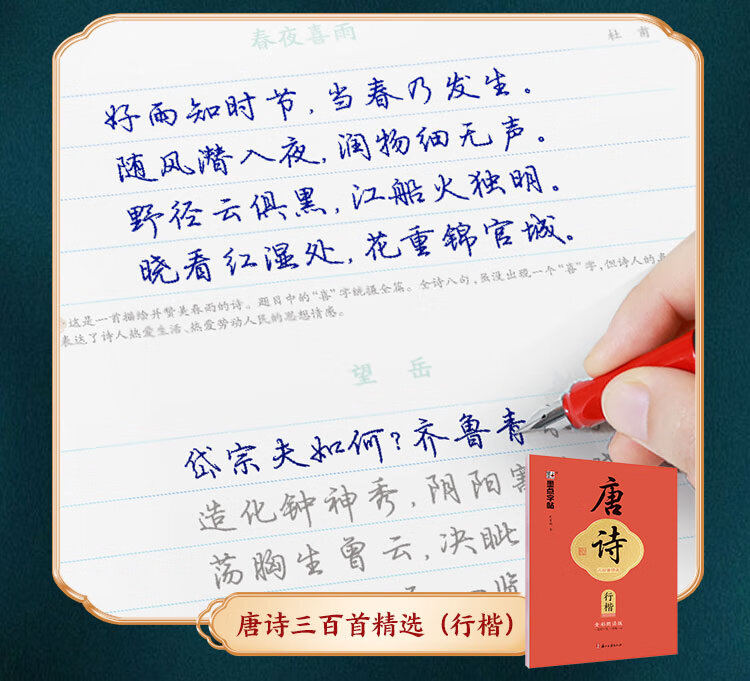 春夜喜雨
杜甫
好雨知时节,当春乃发生。
随风潜入夜,润物细无声。
野径云俱黑,江船火独明。
晓看红湿处,花重锦官城。
这是一首描绘并赞美春雨的诗。题目中的“喜”字统摄全篇。全诗八句,虽没出现一个“喜”字,但诗人的
表达了诗人热爱生活、热爱劳动人民的思想情感。
望岳
岱宗夫如何?齐鲁青
造化钟神秀,阴阳割
荡胸生曾云,决眦
览
墨点字帖
唐诗
行楷
唐诗三百首精选(行楷)